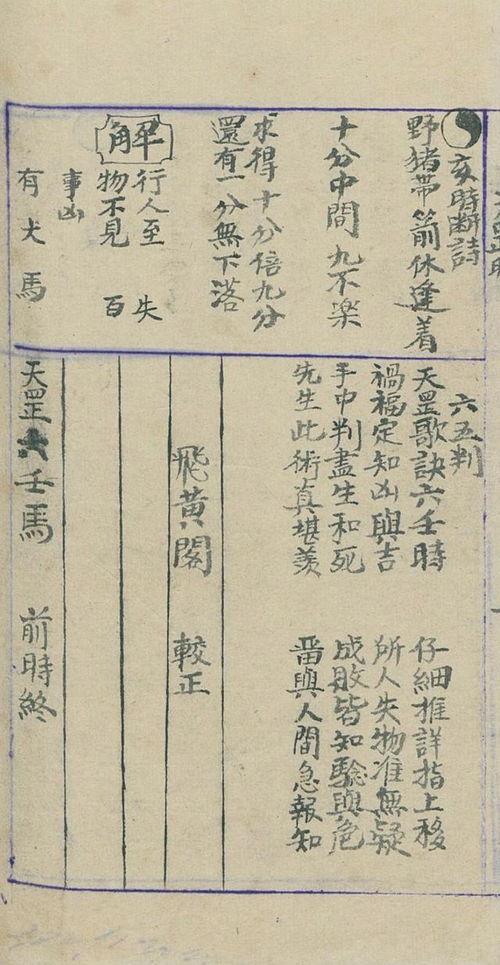 亥時断詩
野猪带箭休逢着
十分中間九不楽
求得十分倍九分
還有一分無下落
解
行人至 失
物不見 百
事凶
有犬馬
六五判
天罡歌訣六壬時 仔細推詳指上移
禍福定知凶與吉 所人失物准無疑
手中判盡生和死 成敗皆知驗與危
先生此術真堪羨 畱與人間急報知
飛黄閣 較正
天罡六壬馬前時終